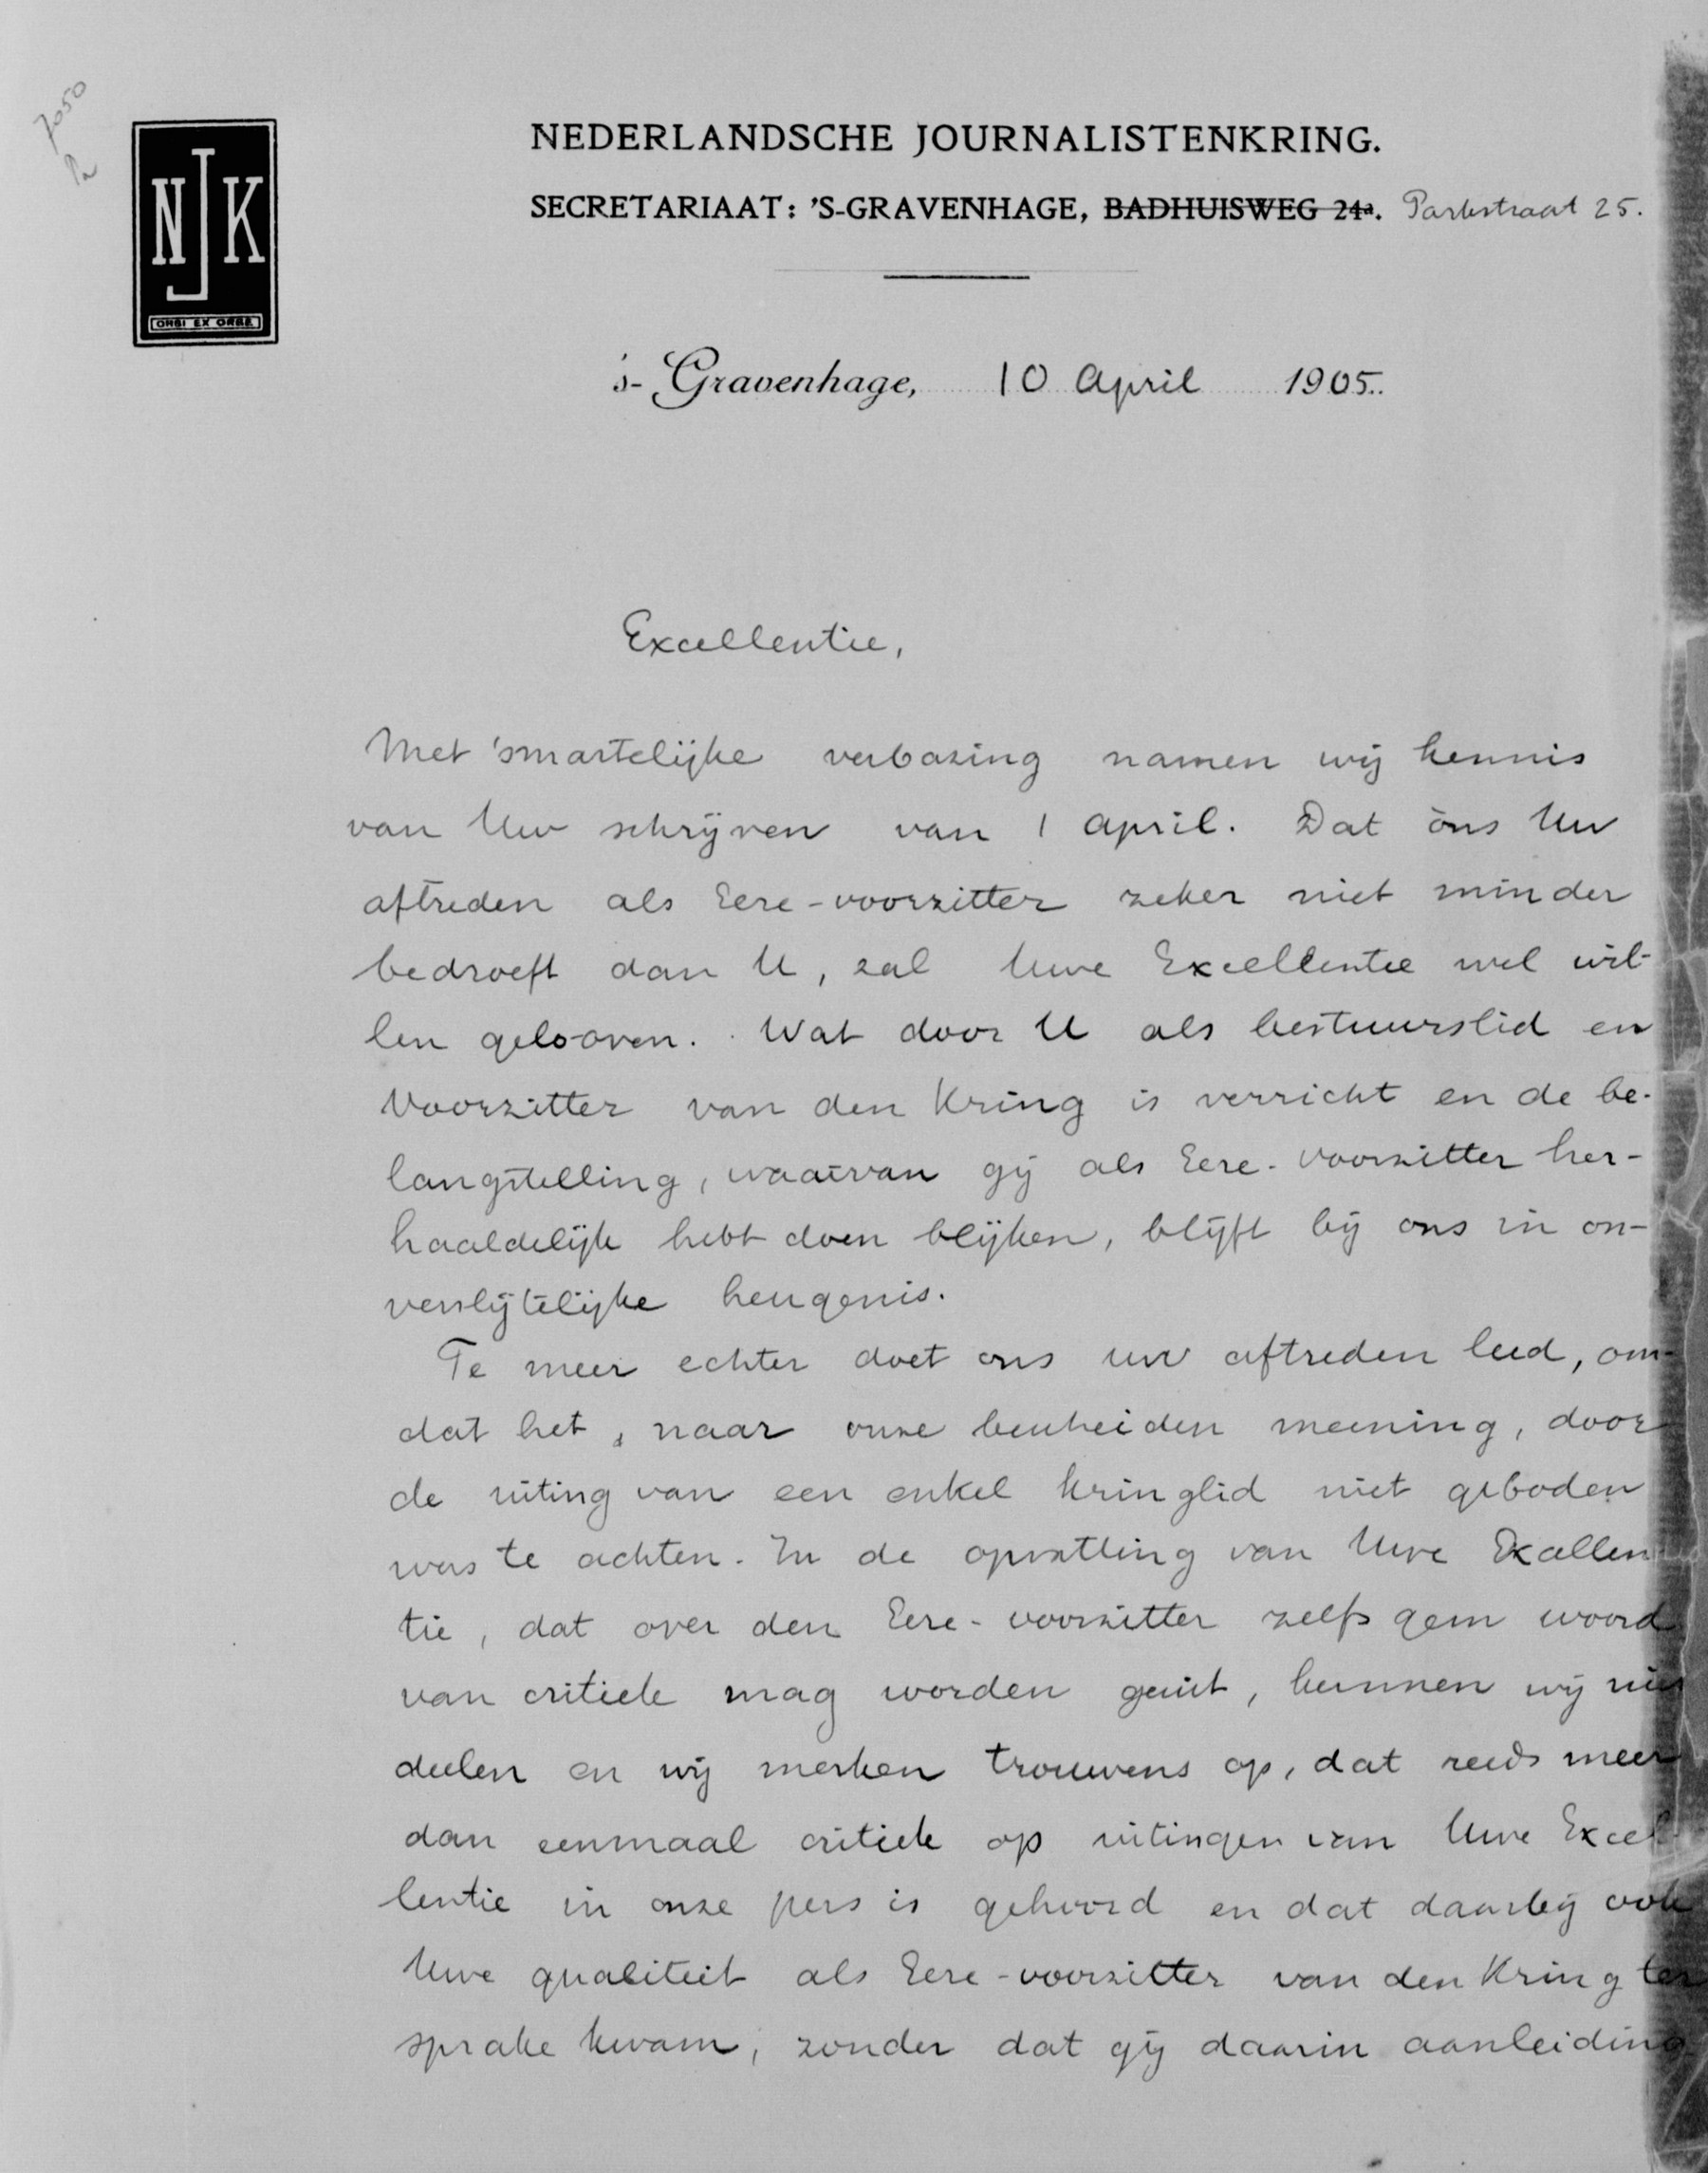 7050
NEDERLANDSCHE JOURNALISTENKRING.
SECRETARIAAT: 'S-GRAVENHAGE, BADHUISWEG 24a. Parkstraat 25.
NJK
ORBI EX ORBE
's-Gravenhage, 10 April 1905.
Excellentie,
Met smartelijke verbazing namen wij kennis
van Uw schrijven van 1 April. Dat òns Uw
aftreden als Eere-voorzitter zeker niet minder
bedroeft dan U, zal Uwe Excellentie wel wil-
len gelooven. Wat door U als bestuurslid en
Voorzitter van den Kring is verricht en de be-
langstelling, waarvan gij als Eere-Voorzitter her-
haaldelijk hebt doen blijken, blijft bij ons in on-
verslijtelijke heugenis.
Te meer echter doet ons uw aftreden leed, om-
dat het, naar onze bescheiden meening, door
de uiting van een enkel kringlid niet geboden
was te achten. In de opvatting van Uwe Excellen
tie, dat over den Eere-voorzitter zelfs geen woord
van critiek mag worden geuit, kunnen wij niet
deelen en wij merken trouwens op, dat reeds meer
dan eenmaal critiek op uitingen van Uwe Excel-
lentie in onze pers is gehoord en dat daarbij ook
Uwe qualiteit als Eere-voorzitter van den Kring ter
sprake kwam, zonder dat gij daarin aanleiding